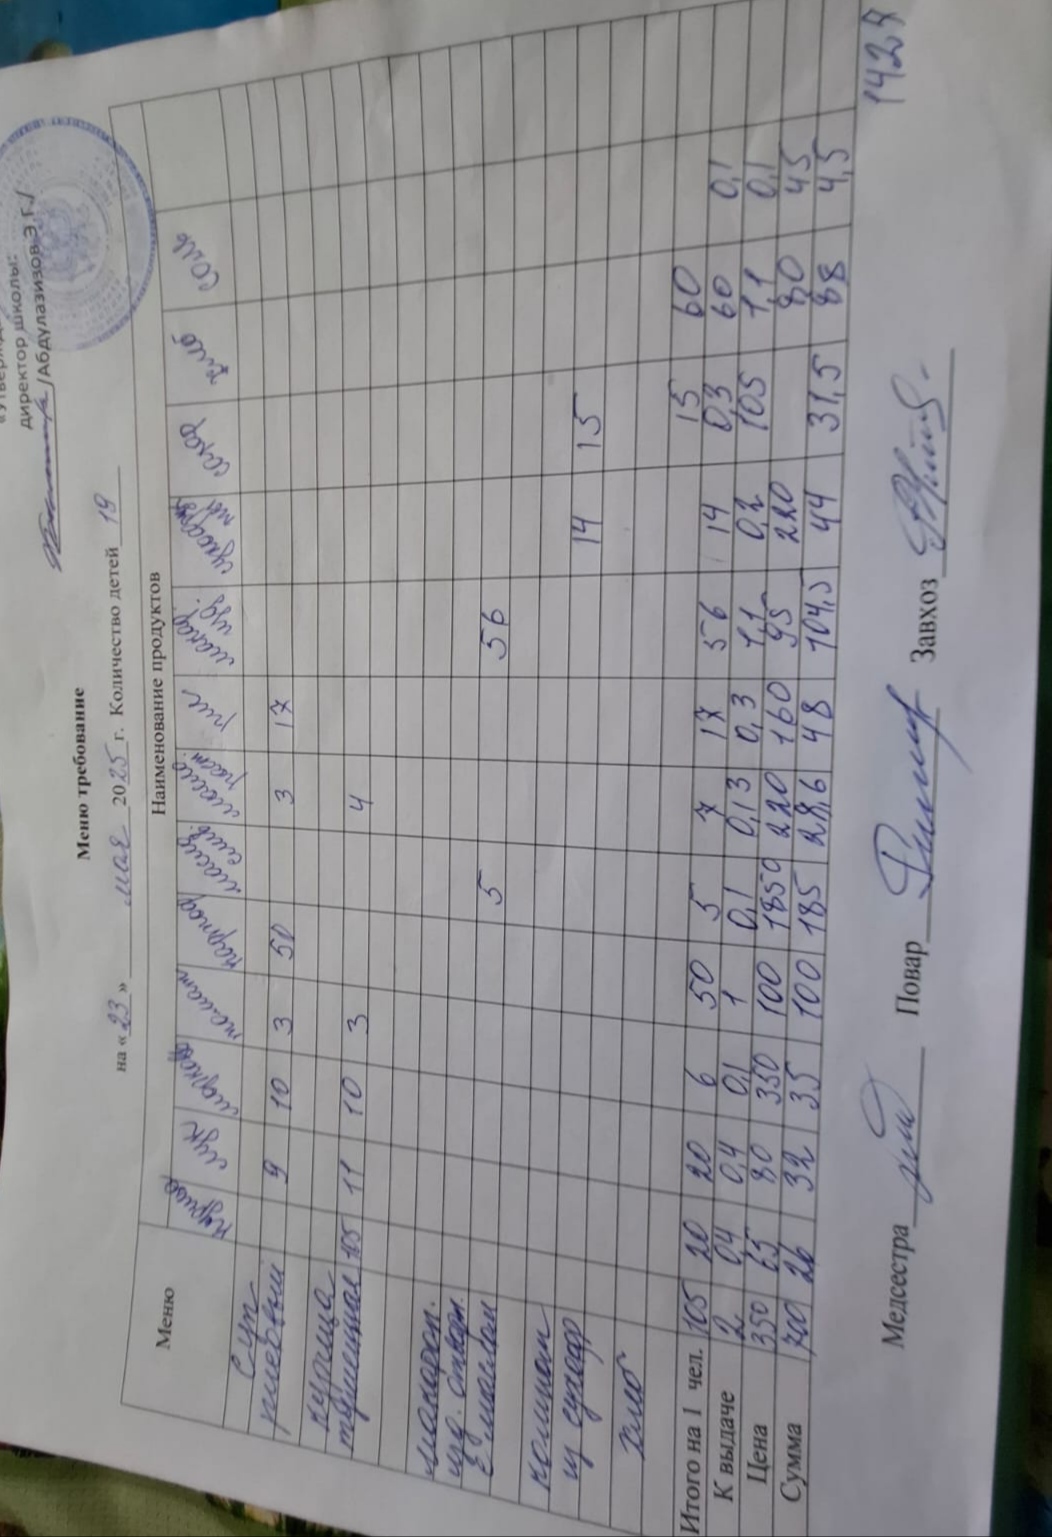 директор школы:
/Абдулазизов Э.Г./
Меню требование
на « 23 » мая 2025 г. Количество детей 19
Меню Наименование продуктов
курица лук морковь томат картоф масло слив. масло раст. рис макар. изд. сухофрукты сахар хлеб соль
Суп
рисовый 9 10 3 50 3 17
курица
тушеная 105 11 10 3 4
макарон.
изд. отварн.
с маслом 5 56
компот
из сухофр 14 15
хлеб
Итого на 1 чел. 105 20 20 6 50 5 7 17 56 14 15 60
К выдаче 2 0,4 0,4 0,1 1 0,1 0,13 0,3 1,1 14 0,3 60 0,1
Цена 350 65 80 350 100 1850 220 160 95 0,2 105 1,1 0,1
220 80 45
Сумма 700 26 32 35 100 185 28,6 48 104,5 44 31,5 88 4,5
Медсестра Повар Завхоз